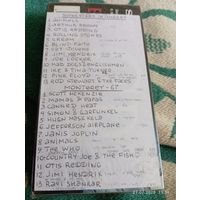 SUPERSTARS IN CONCERT
1. CAN HALL
2. ARTHUR BROWN
3. OTIS REDDING
4. ROLLING STONES
5. CREAM
6. BLIND FAITH
7. CAT STEVENS
8. JIMI HENDRIX
9. JOE COCKER
10. MAD DOGS & ENGLISHMEN
11. IKE & TINA TURNER
12. PINK FLOYD
13. ROD STEWART & THE FACES
MONTEREY - 67
1. SCOTT MCKENZIE
2. MAMAS & PAPAS
3. CANNED HEAT
4. SIMON & GARFUNKEL
5. HUGH MASEKELA
6. JEFFERSON AIRPLANE
7. JANIS JOPLIN
8. ANIMALS
9. THE WHO
10. COUNTRY JOE & THE FISH
11. OTIS REDDING
12. JIMI HENDRIX
13. RAVI SHANKAR